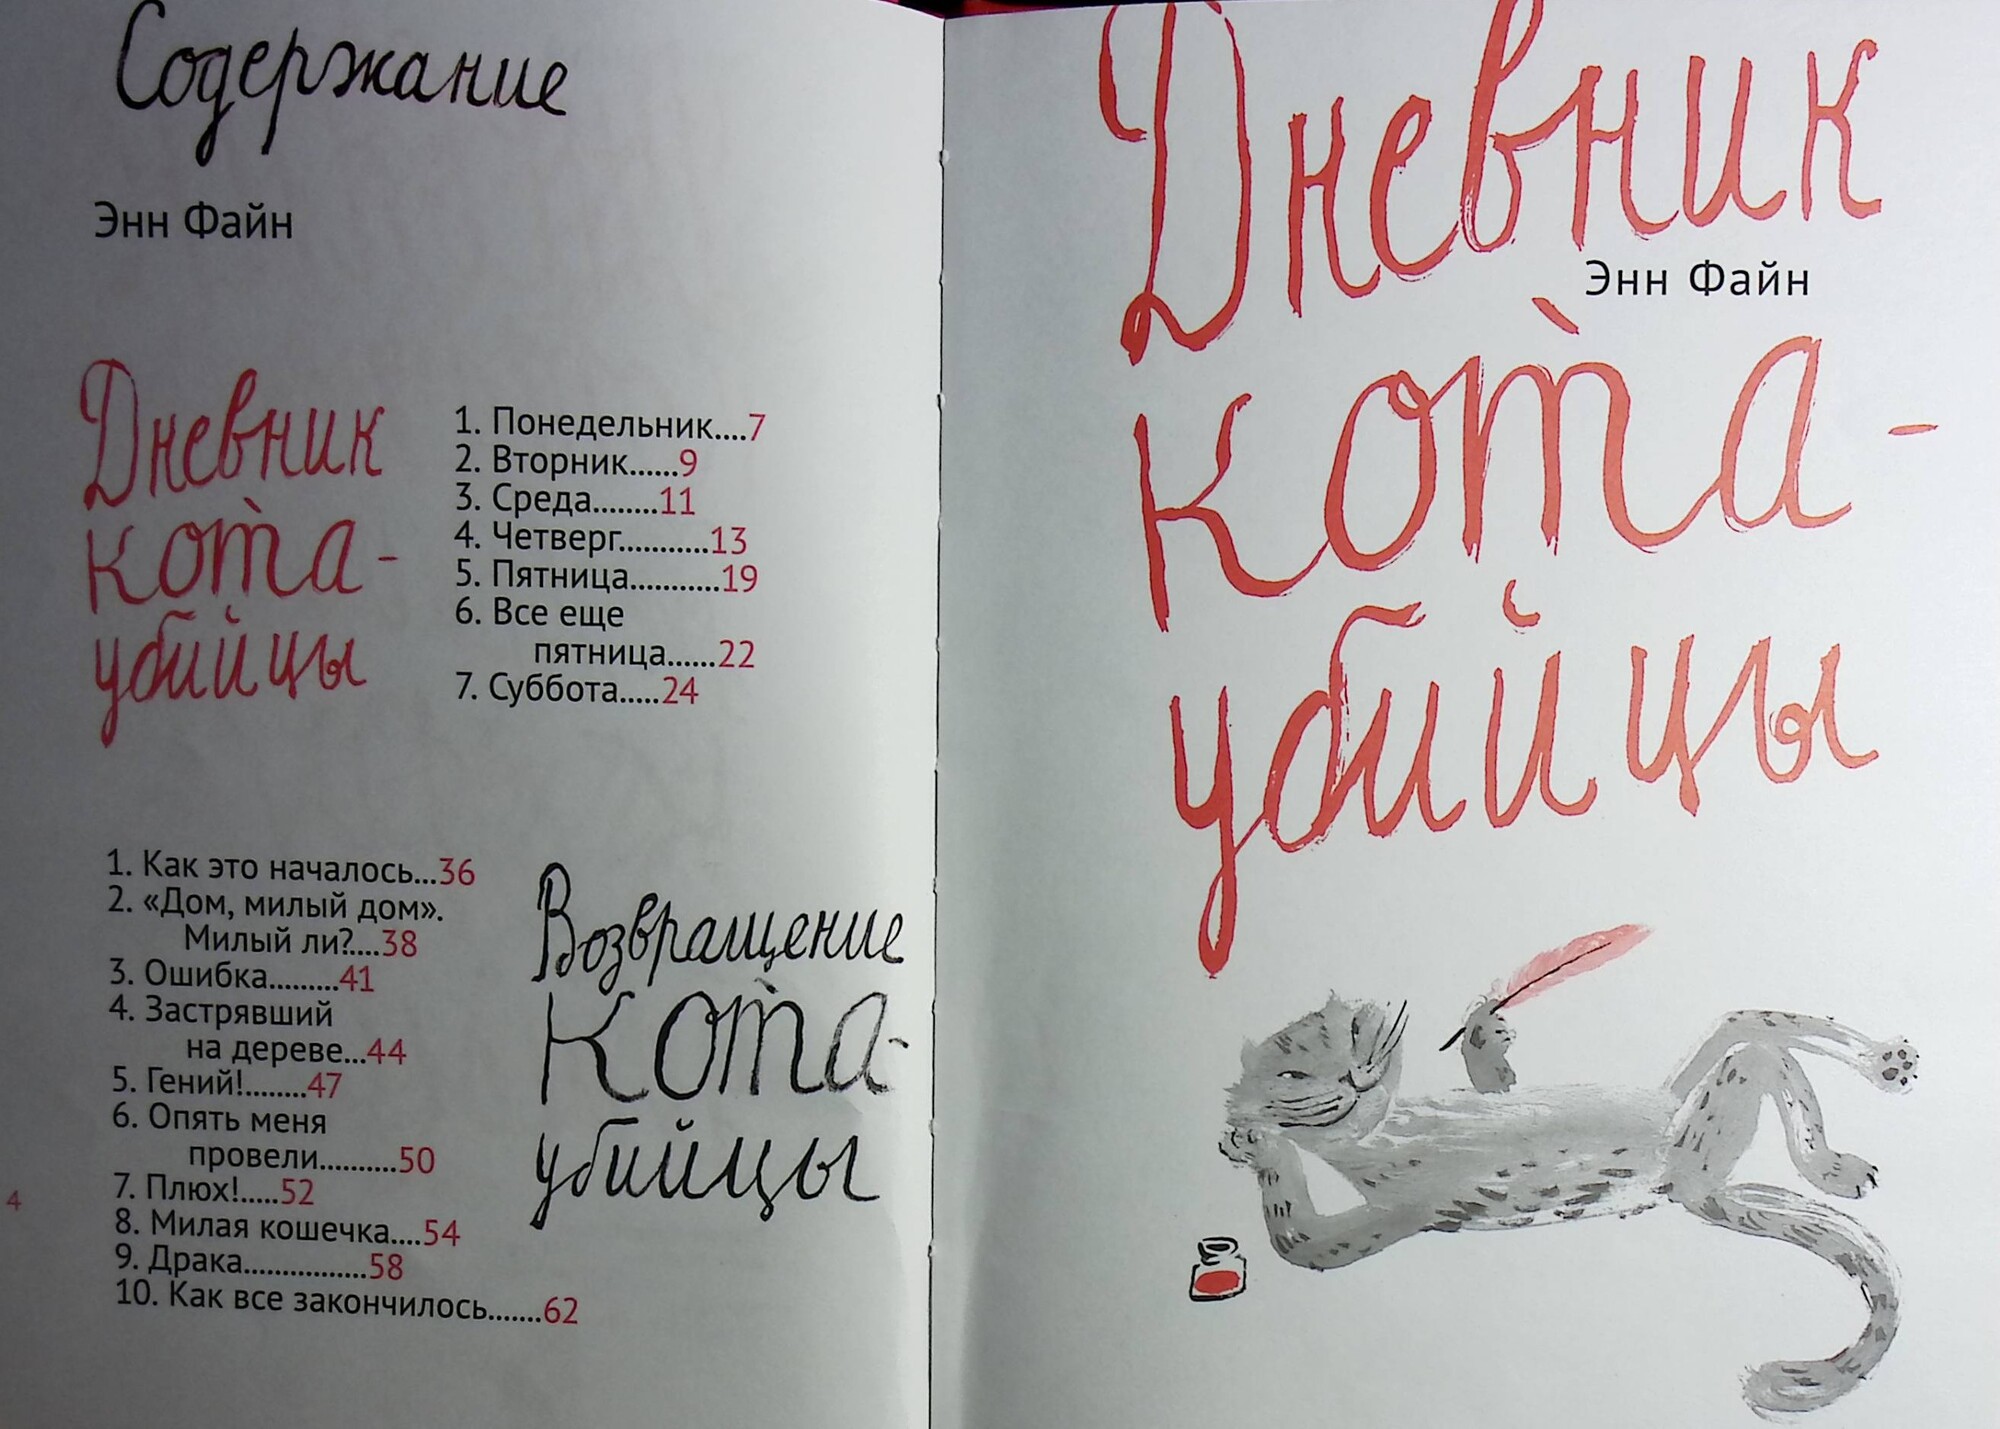 Содержание
Энн Файн
Дневник
кота-
убийцы
1. Понедельник....7
2. Вторник......9
3. Среда........11
4. Четверг...........13
5. Пятница...........19
6. Все еще
пятница......22
7. Суббота.....24
1. Как это началось...36
2. «Дом, милый дом».
Милый ли?....38
3. Ошибка.........41
4. Застрявший
на дереве...44
5. Гений!........47
6. Опять меня
провели..........50
7. Плюх!.....52
8. Милая кошечка....54
9. Драка................58
10. Как все закончилось.......62
Возвращение
кота-
убийцы
4
Дневник
Энн Файн
кота-
убийцы